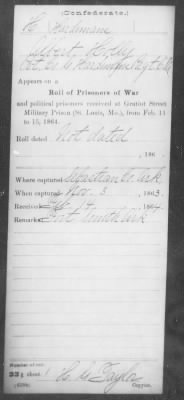 (Confederate.)
H Hardeman
Albert H.
Pvt. Co. G Hardeman's Regt.
Appears on a
Roll of Prisoners of War
and political prisoners received at Gratiot Street
Military Prison (St. Louis, Mo.), from Feb. 11
to 15, 1864.
Roll dated
Not dated
, 186
Where captured Sebastian Co. Ark
When captured Nov. 3, 1863.
Received 1864
Remarks: Fort Smith Ark
Number of roll:
33; sheet 1
Taylor
Copyist.